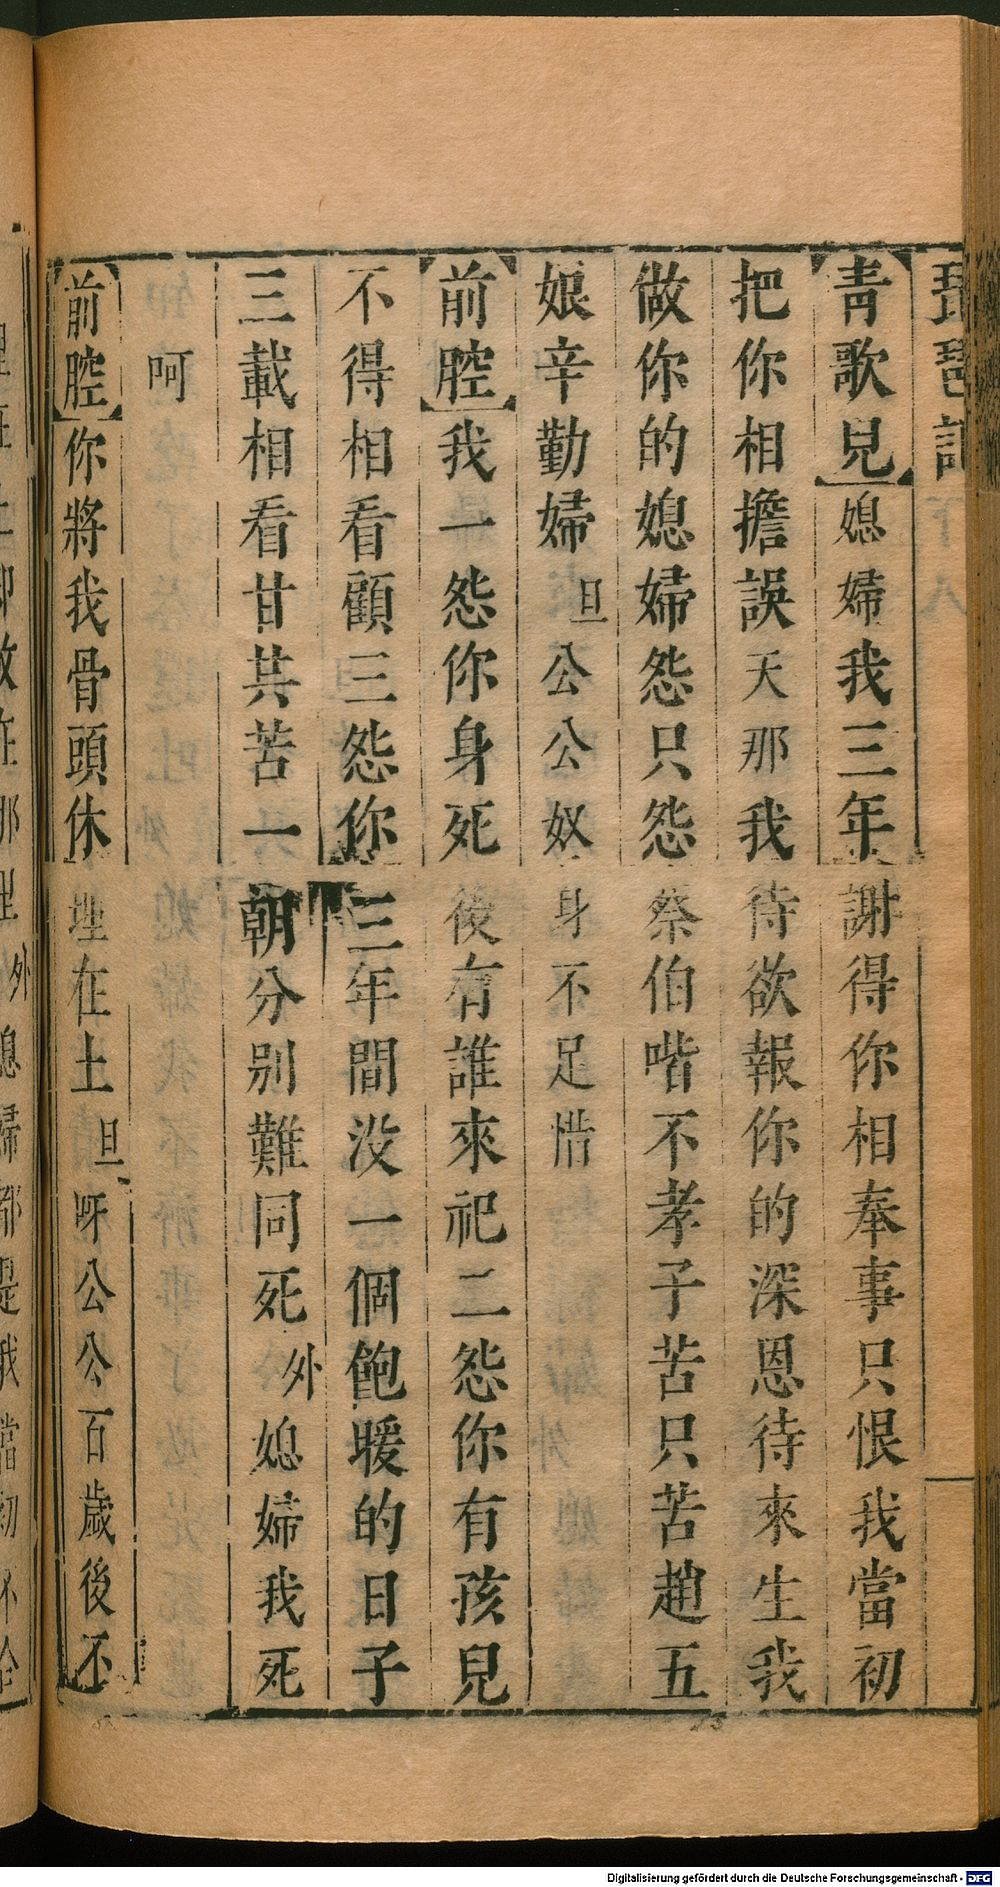 琵琶記
【青歌兒】媳婦我三年謝得你相奉事只恨我當初
把你相擔誤天那我待欲報你的深恩待來生我
做你的媳婦怨只怨蔡伯喈不孝子苦只苦趙五
娘辛勤婦旦公公奴身不足惜
【前腔】我一怨你身死後有誰來祀二怨你有孩兒
不得相看顧三怨你三年間没一個飽暖的日子
三載相看甘共苦一朝分别難同死外媳婦我死
呵
【前腔】你將我骨頭休埋在土旦呀公公百歲後不
Digitalisierung gefördert durch die Deutsche Forschungsgemeinschaft - DFG